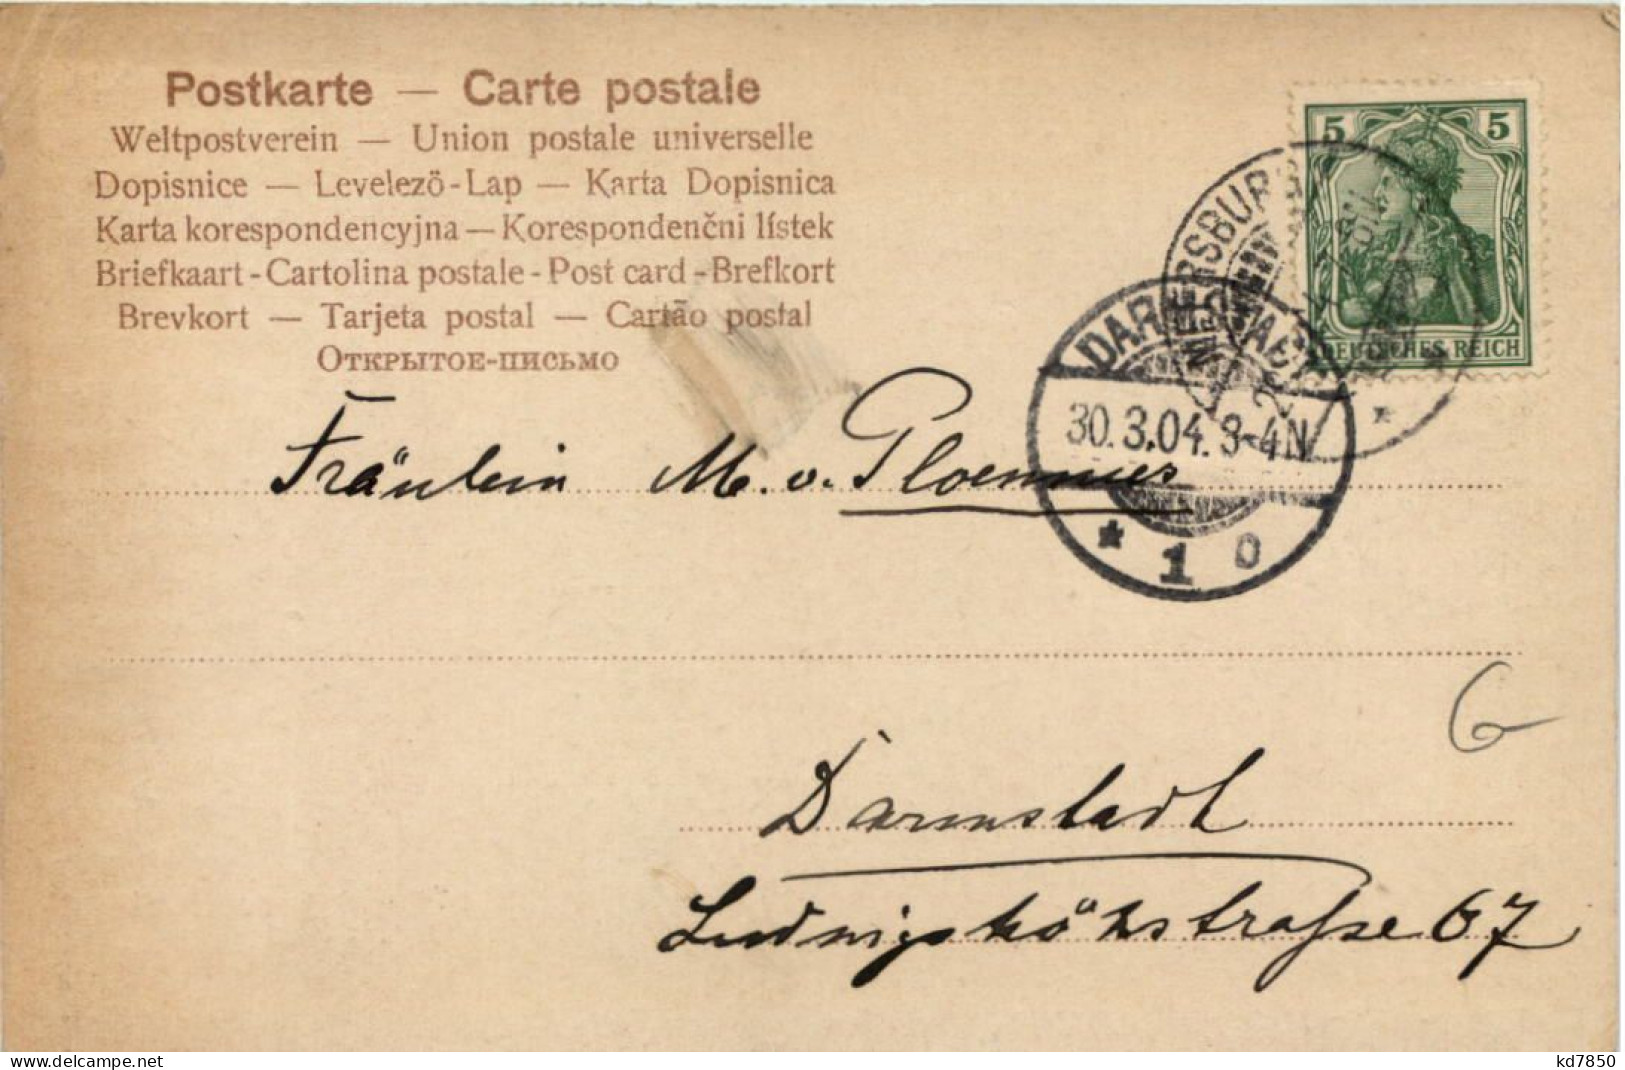 Postkarte — Carte postale
Weltpostverein — Union postale universelle
Dopisnice — Levelezö-Lap — Karta Dopisnica
Karta korespondencyjna — Korespondenčni lístek
Briefkaart - Cartolina postale - Post card - Brefkort
Brevkort — Tarjeta postal — Cartão postal
Открытое-письмо
5 5
DEUTSCHES REICH
DARMSTADT
30.3.04. 3-4N
* 1 D
Fräulein M. v. Ploennies
G
Darmstadt
Ludwigshöhstraße 67
www.delcampe.net
kd7850